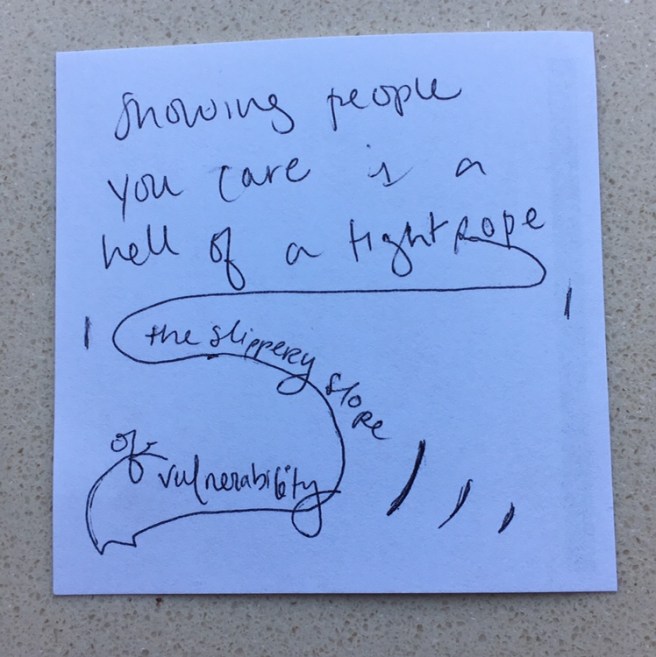 Showing people
you care is a
hell of a tightrope
the slippery slope
of vulnerability